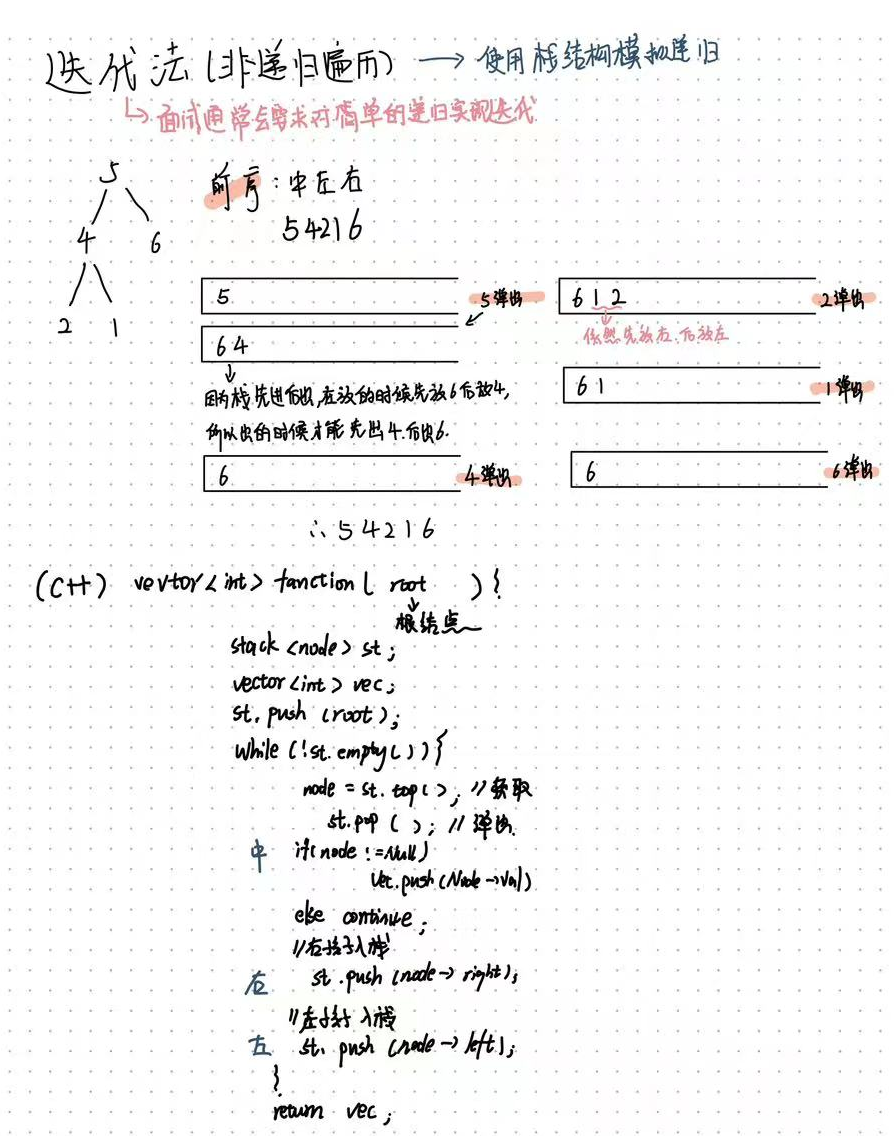 迭代法(非递归遍历) → 使用栈结构模拟递归
↳ 面试通常会要求对简单的递归实现迭代
5
4 6
2 1
前序:中左右
54216
5
5弹出
6 4
因为栈先进后出,在放的时候先放6后放4,
所以出的时候才能先出4.后出6.
6
4弹出
6 1 2
2弹出
依然先放右.后放左
6 1
1弹出
6
6弹出
∴ 5 4 2 1 6
(C++) vevtor<int> fanction( root ){
根结点
stack <node> st;
vector<int> vec;
st. push (root);
while (!st. empty()){
node = st. top(); //获取
st.pop ( ); // 弹出
中 if(node !=Null)
Vec.push(Node->Val)
else continue;
//右孩子入栈
右 st .push (node-> right);
//左孩子入栈
左 st. push (node-> left);
}
return vec;